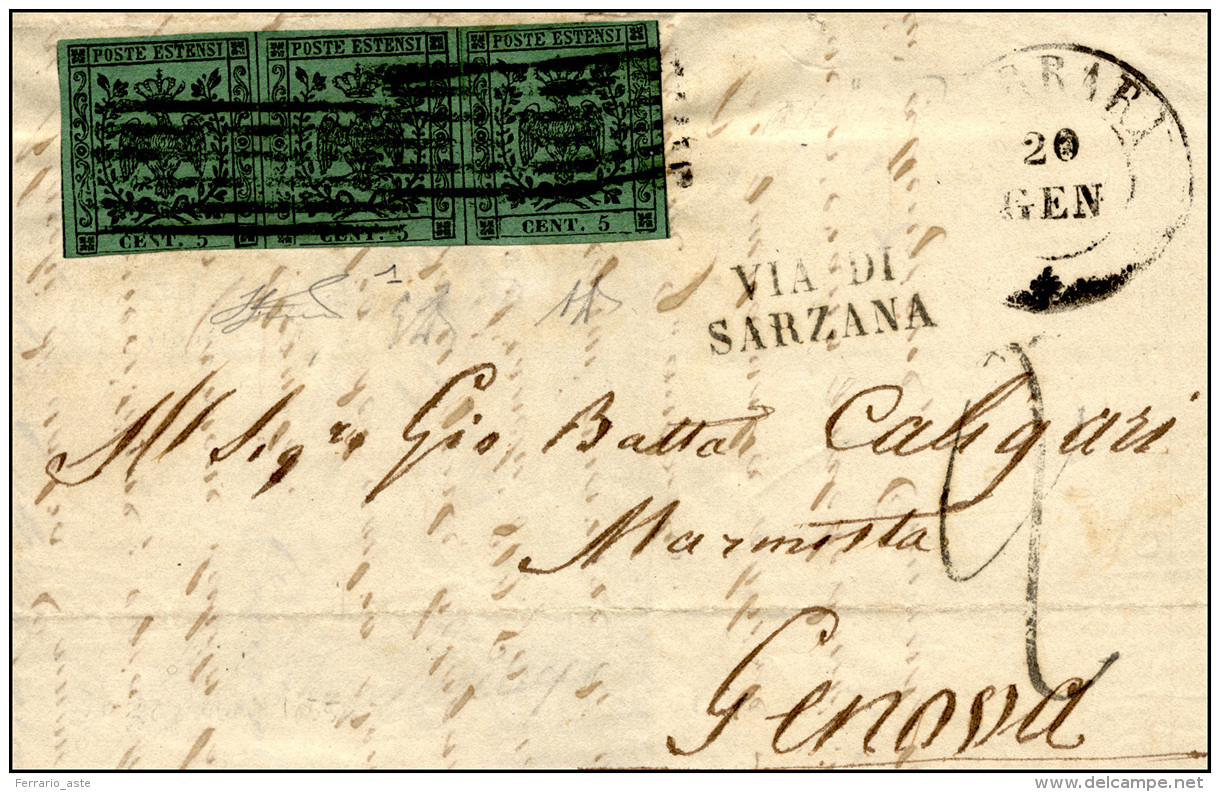 POSTE ESTENSI POSTE ESTENSI POSTE ESTENSI
CENT. 5 CENT. 5 CENT. 5
RRARA
20
GEN
VIA DI
SARZANA
1
All Sigre Gio Batta Caligari
Marmista
Genova
Ferrario_aste
www.delcampe.net